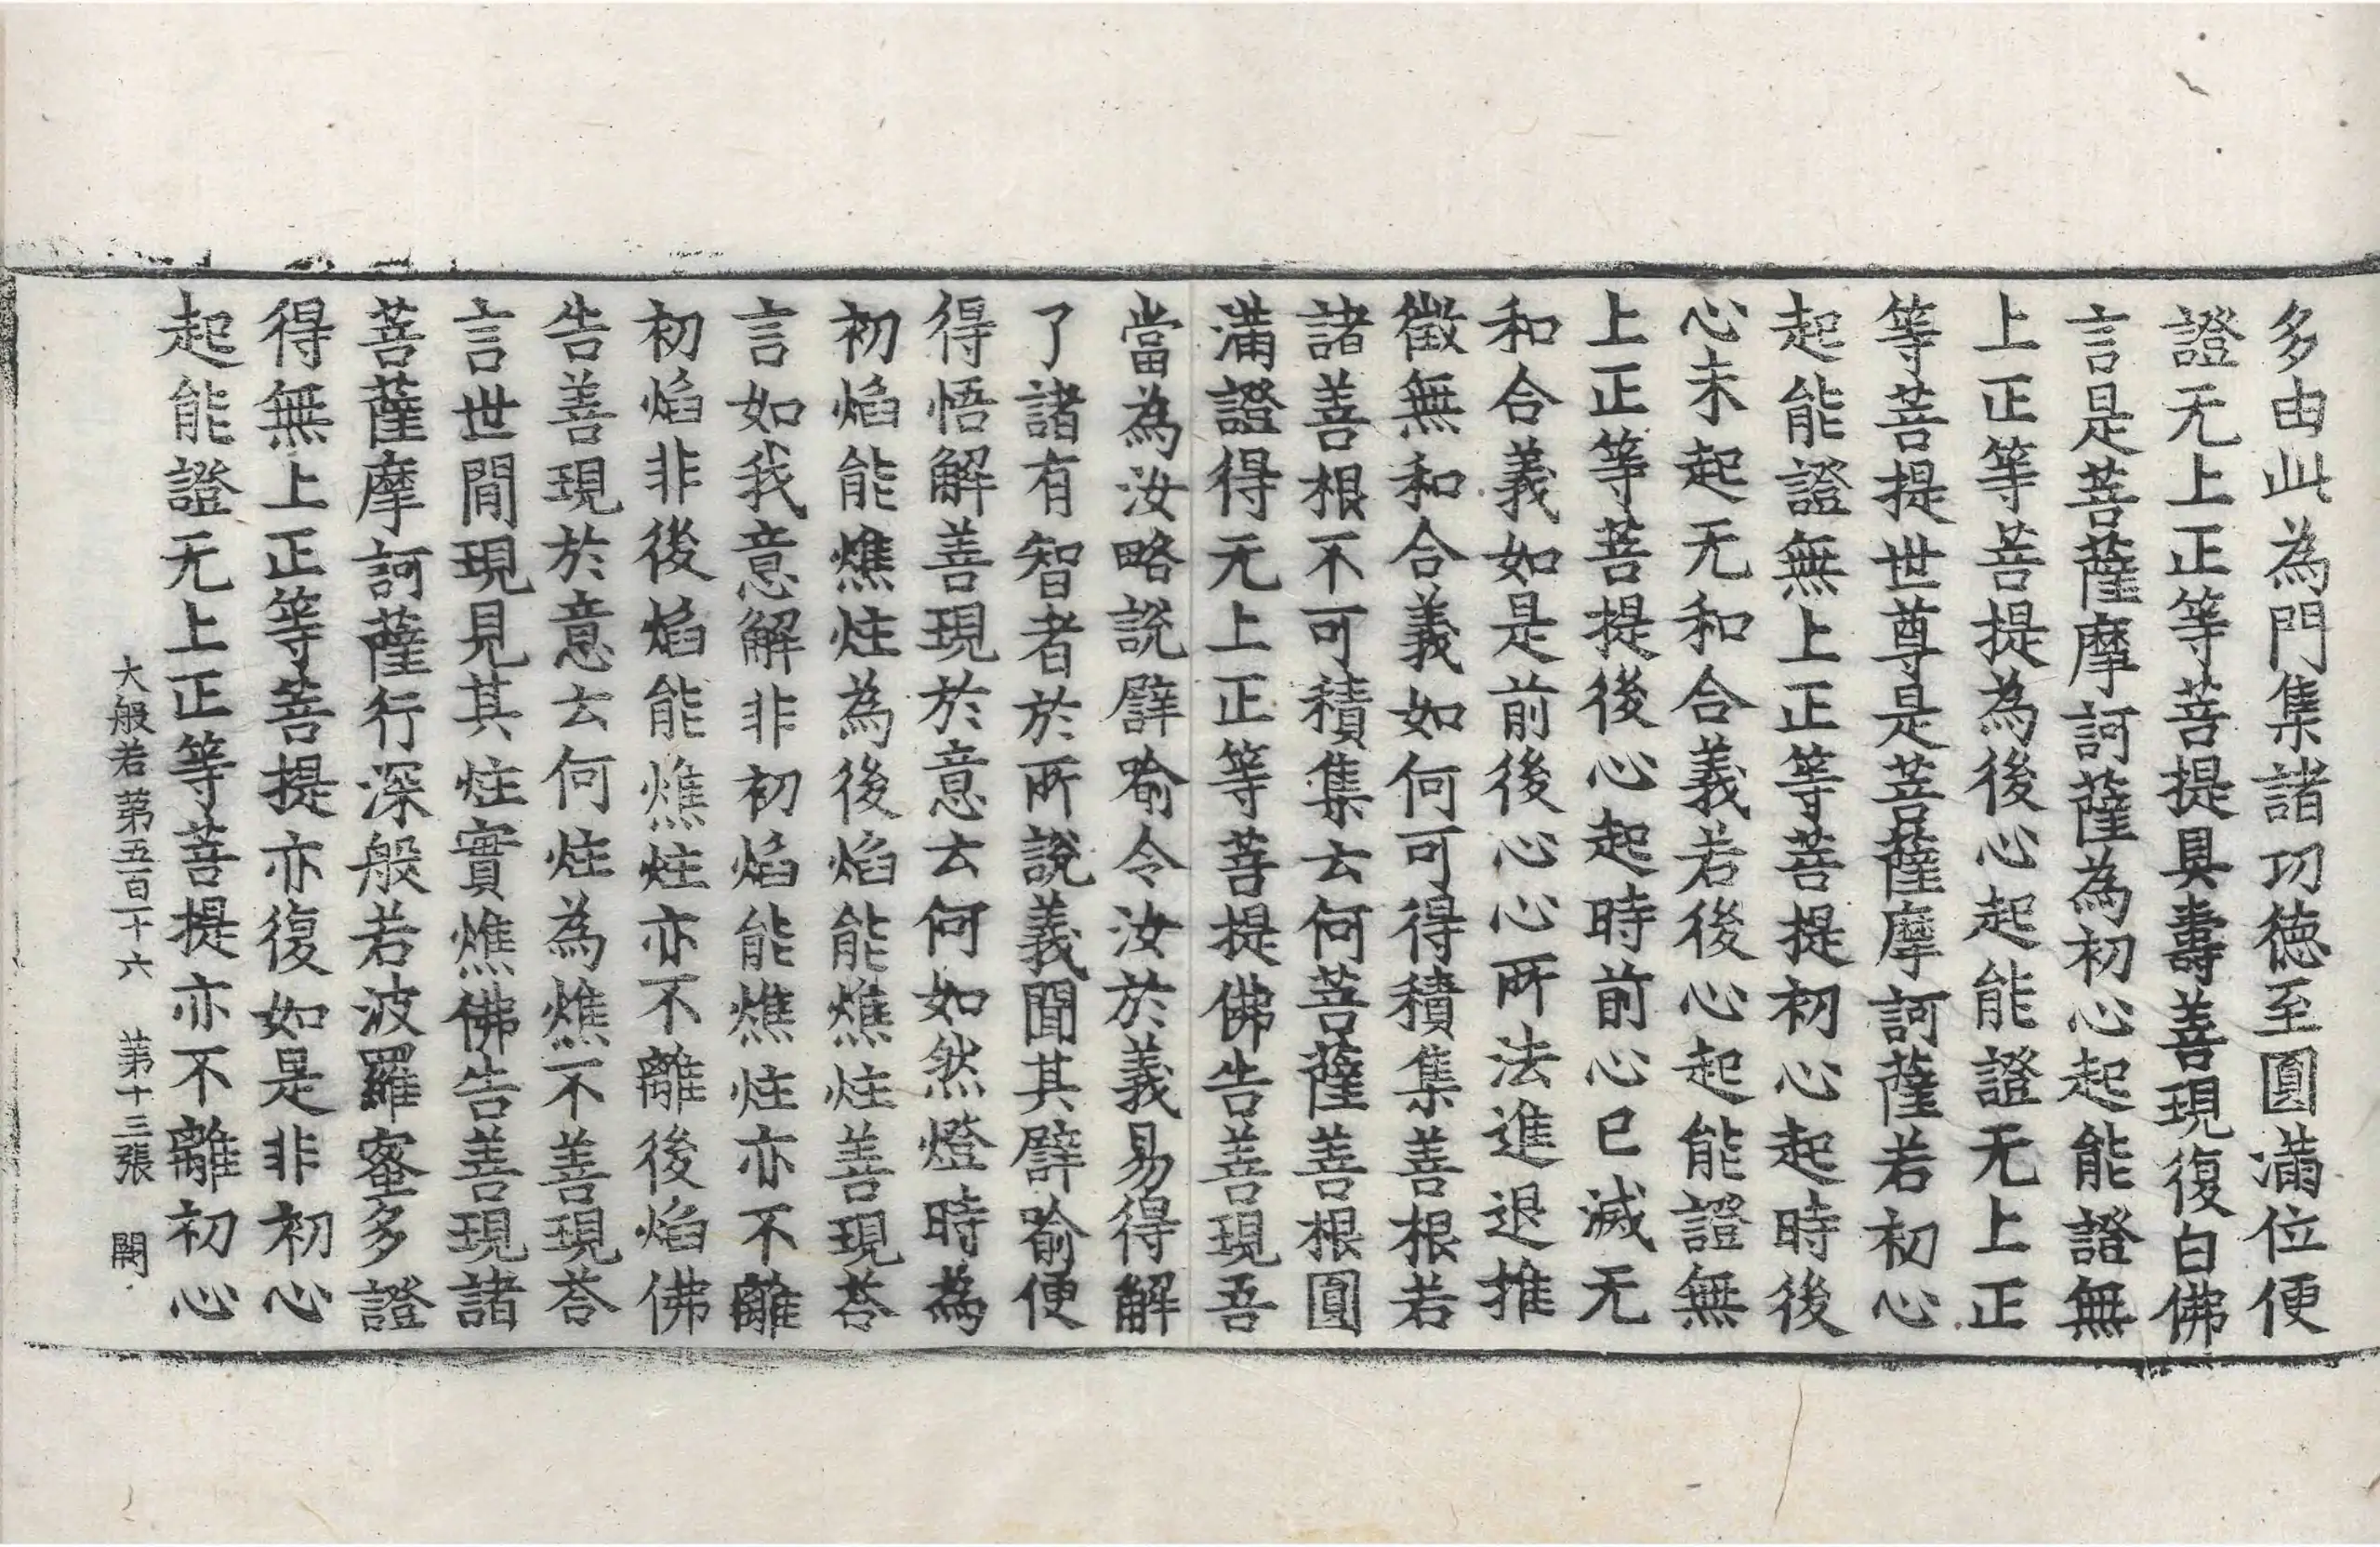 多由此為門集諸功德至圓滿位便
證无上正等菩提具壽善現復白佛
言是菩薩摩訶薩為初心起能證無
上正等菩提為後心起能證无上正
等菩提世尊是菩薩摩訶薩若初心
起能證無上正等菩提初心起時後
心未起无和合義若後心起能證無
上正等菩提後心起時前心已滅无
和合義如是前後心心所法進退推
徵無和合義如何可得積集善根若
諸善根不可積集云何菩薩善根圓
滿證得无上正等菩提佛告善現吾
當為汝略說譬喻令汝於義易得解
了諸有智者於所說義聞其譬喻便
得悟解善現於意云何如然燈時為
初焰能燋炷為後焰能燋炷善現荅
言如我意解非初焰能燋炷亦不離
初焰非後焰能燋炷亦不離後焰佛
告善現於意云何炷為燋不善現荅
言世間現見其炷實燋佛告善現諸
菩薩摩訶薩行深般若波羅蜜多證
得無上正等菩提亦復如是非初心
起能證无上正等菩提亦不離初心
大般若第五百二十六 第十三張 闕